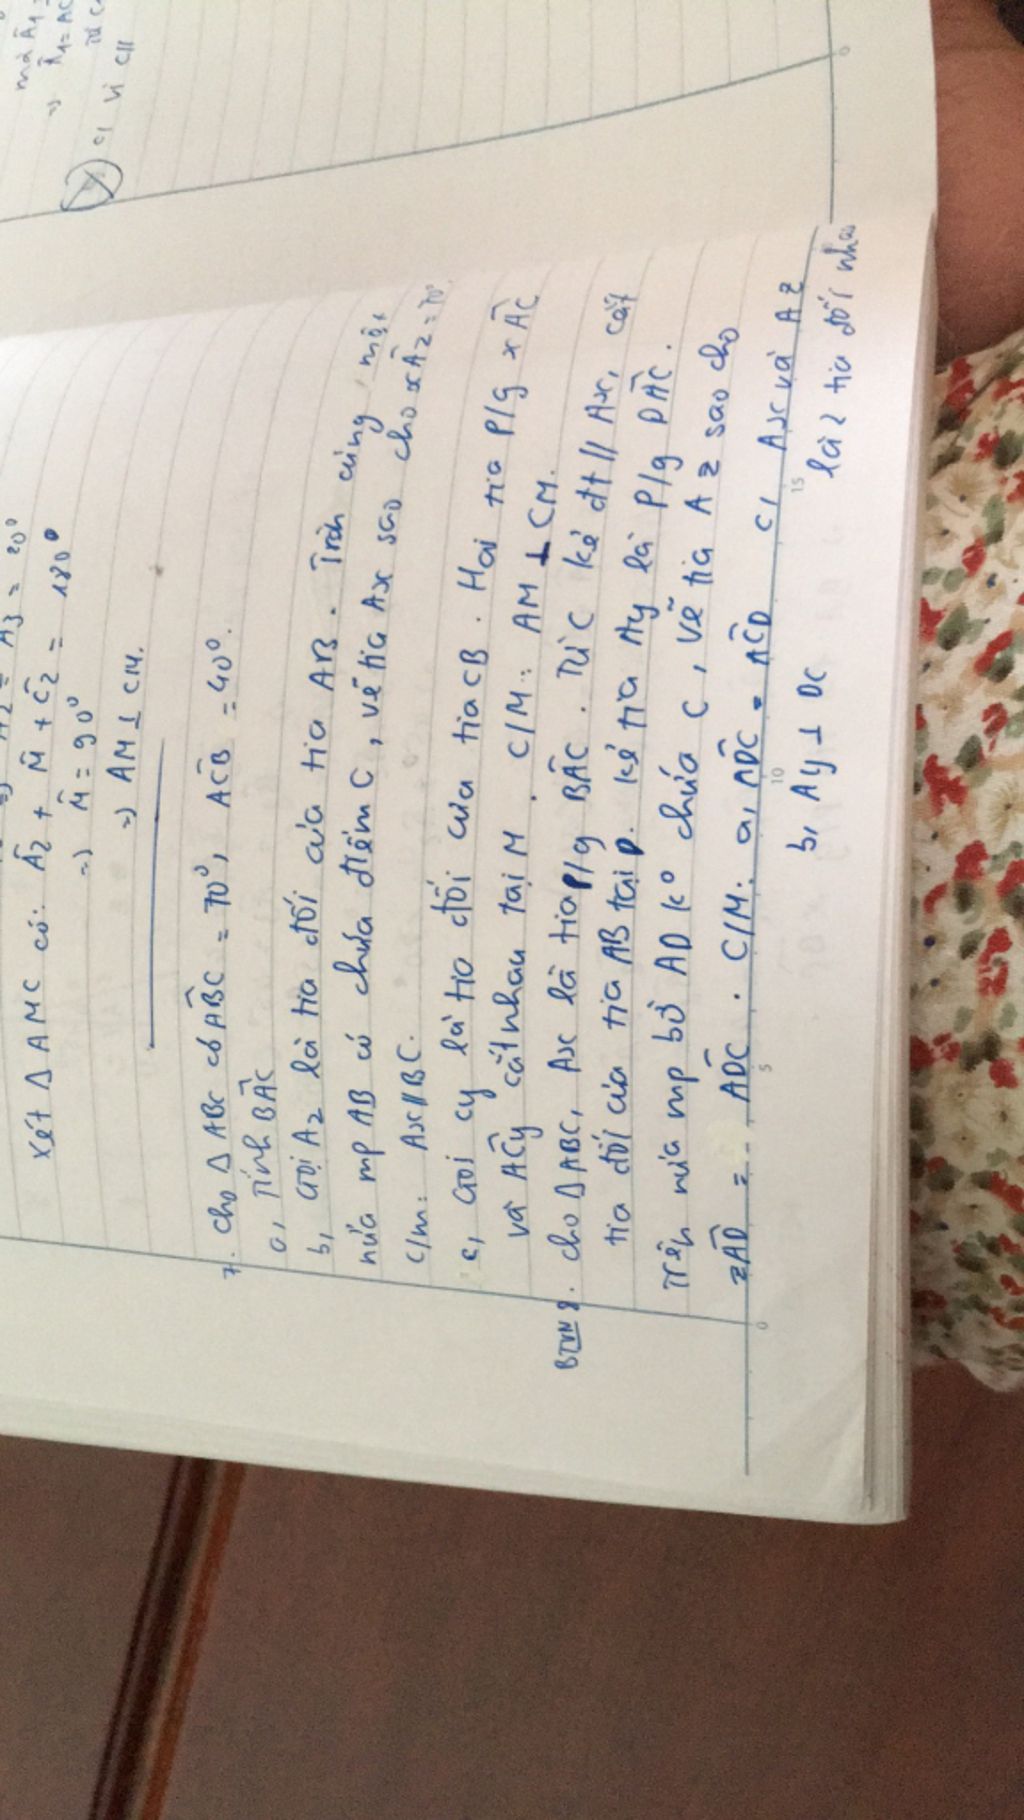 mà Â1 =
=> Â1 = AC
Từ C
c, Vì C//
Â3 = 20°
Xét Δ AMC có: Â2 + M̂ + Ĉ2 = 180°
=> M̂ = 90°
=> AM ⊥ CM.
7. Cho Δ ABC có AB̂C = 70°, AĈB = 40°.
a, Tính BÂC
b, Gọi Az là tia đối của tia AB. Trên cùng một
nửa mp AB có chứa điểm C, vẽ tia Ax sao cho xÂz = 70°.
C/m: Ax // BC.
c, Gọi Cy là tia đối của tia CB. Hai tia p/g xÂC
và AĈy cắt nhau tại M. C/M: AM ⊥ CM.
BTVN 8. Cho Δ ABC, Ax là tia p/g BÂC. Từ C kẻ đt // Ax, cắt
tia đối của tia AB tại D. Kẻ tia Ay là p/g DÂC.
Trên nửa mp bờ AD k° chứa C, vẽ tia Az sao cho
zÂD = AD̂C. C/M: a, AD̂C = AĈD c, Ax và Az
b, Ay ⊥ DC là 2 tia đối nhau
0 5 10 15